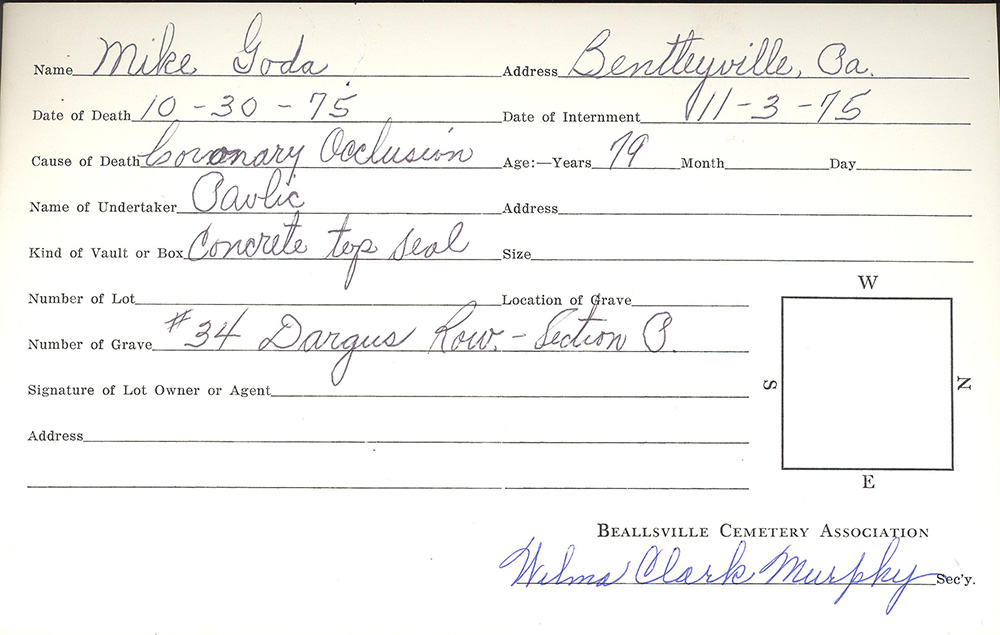 Name Mike Goda Address Bentleyville, Pa.
Date of Death 10-30-75 Date of Internment 11-3-75
Cause of Death Coronary Occlusion Age:—Years 79 Month Day
Name of Undertaker Pavlic Address
Kind of Vault or Box Concrete top seal Size
Number of Lot Location of Grave
W
Number of Grave #34 Dargus Row. - Section P.
S N
Signature of Lot Owner or Agent
Address
E
BEALLSVILLE CEMETERY ASSOCIATION
Wilma Clark Murphy Sec'y.